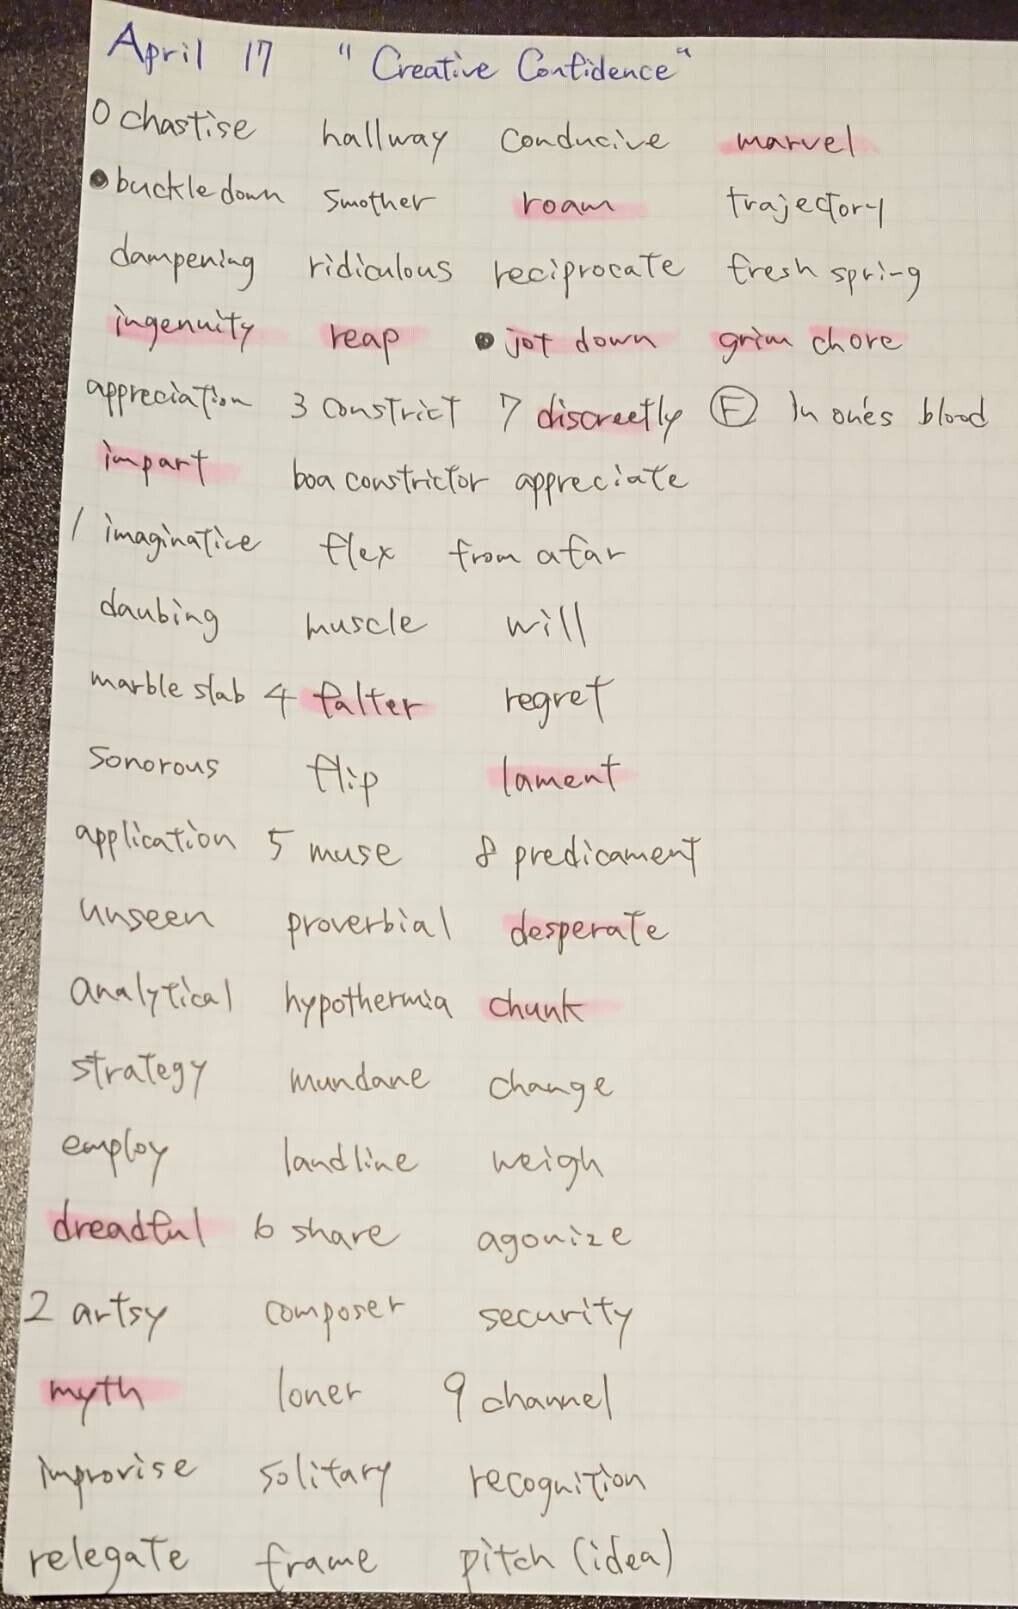 April 17 "Creative Confidence"
0 chastise hallway conducive marvel
● buckle down smother roam trajectory
dampening ridiculous reciprocate fresh spring
ingenuity reap ● jot down grim chore
appreciation 3 constrict 7 discreetly Ⓕ In one's blood
impart boa constrictor appreciate
1 imaginative flex from afar
daubing muscle will
marble slab 4 falter regret
sonorous flip lament
application 5 muse 8 predicament
unseen proverbial desperate
analytical hypothermia chunk
strategy mundane change
employ landline weigh
dreadful 6 share agonize
2 artsy composer security
myth loner 9 channel
improvise solitary recognition
relegate frame pitch (idea)